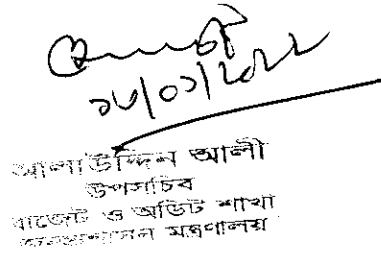 ১৮/০১/২০২২
আলাউদ্দিন আলী
উপসচিব
বাজেট ও অডিট শাখা
জনপ্রশাসন মন্ত্রণালয়